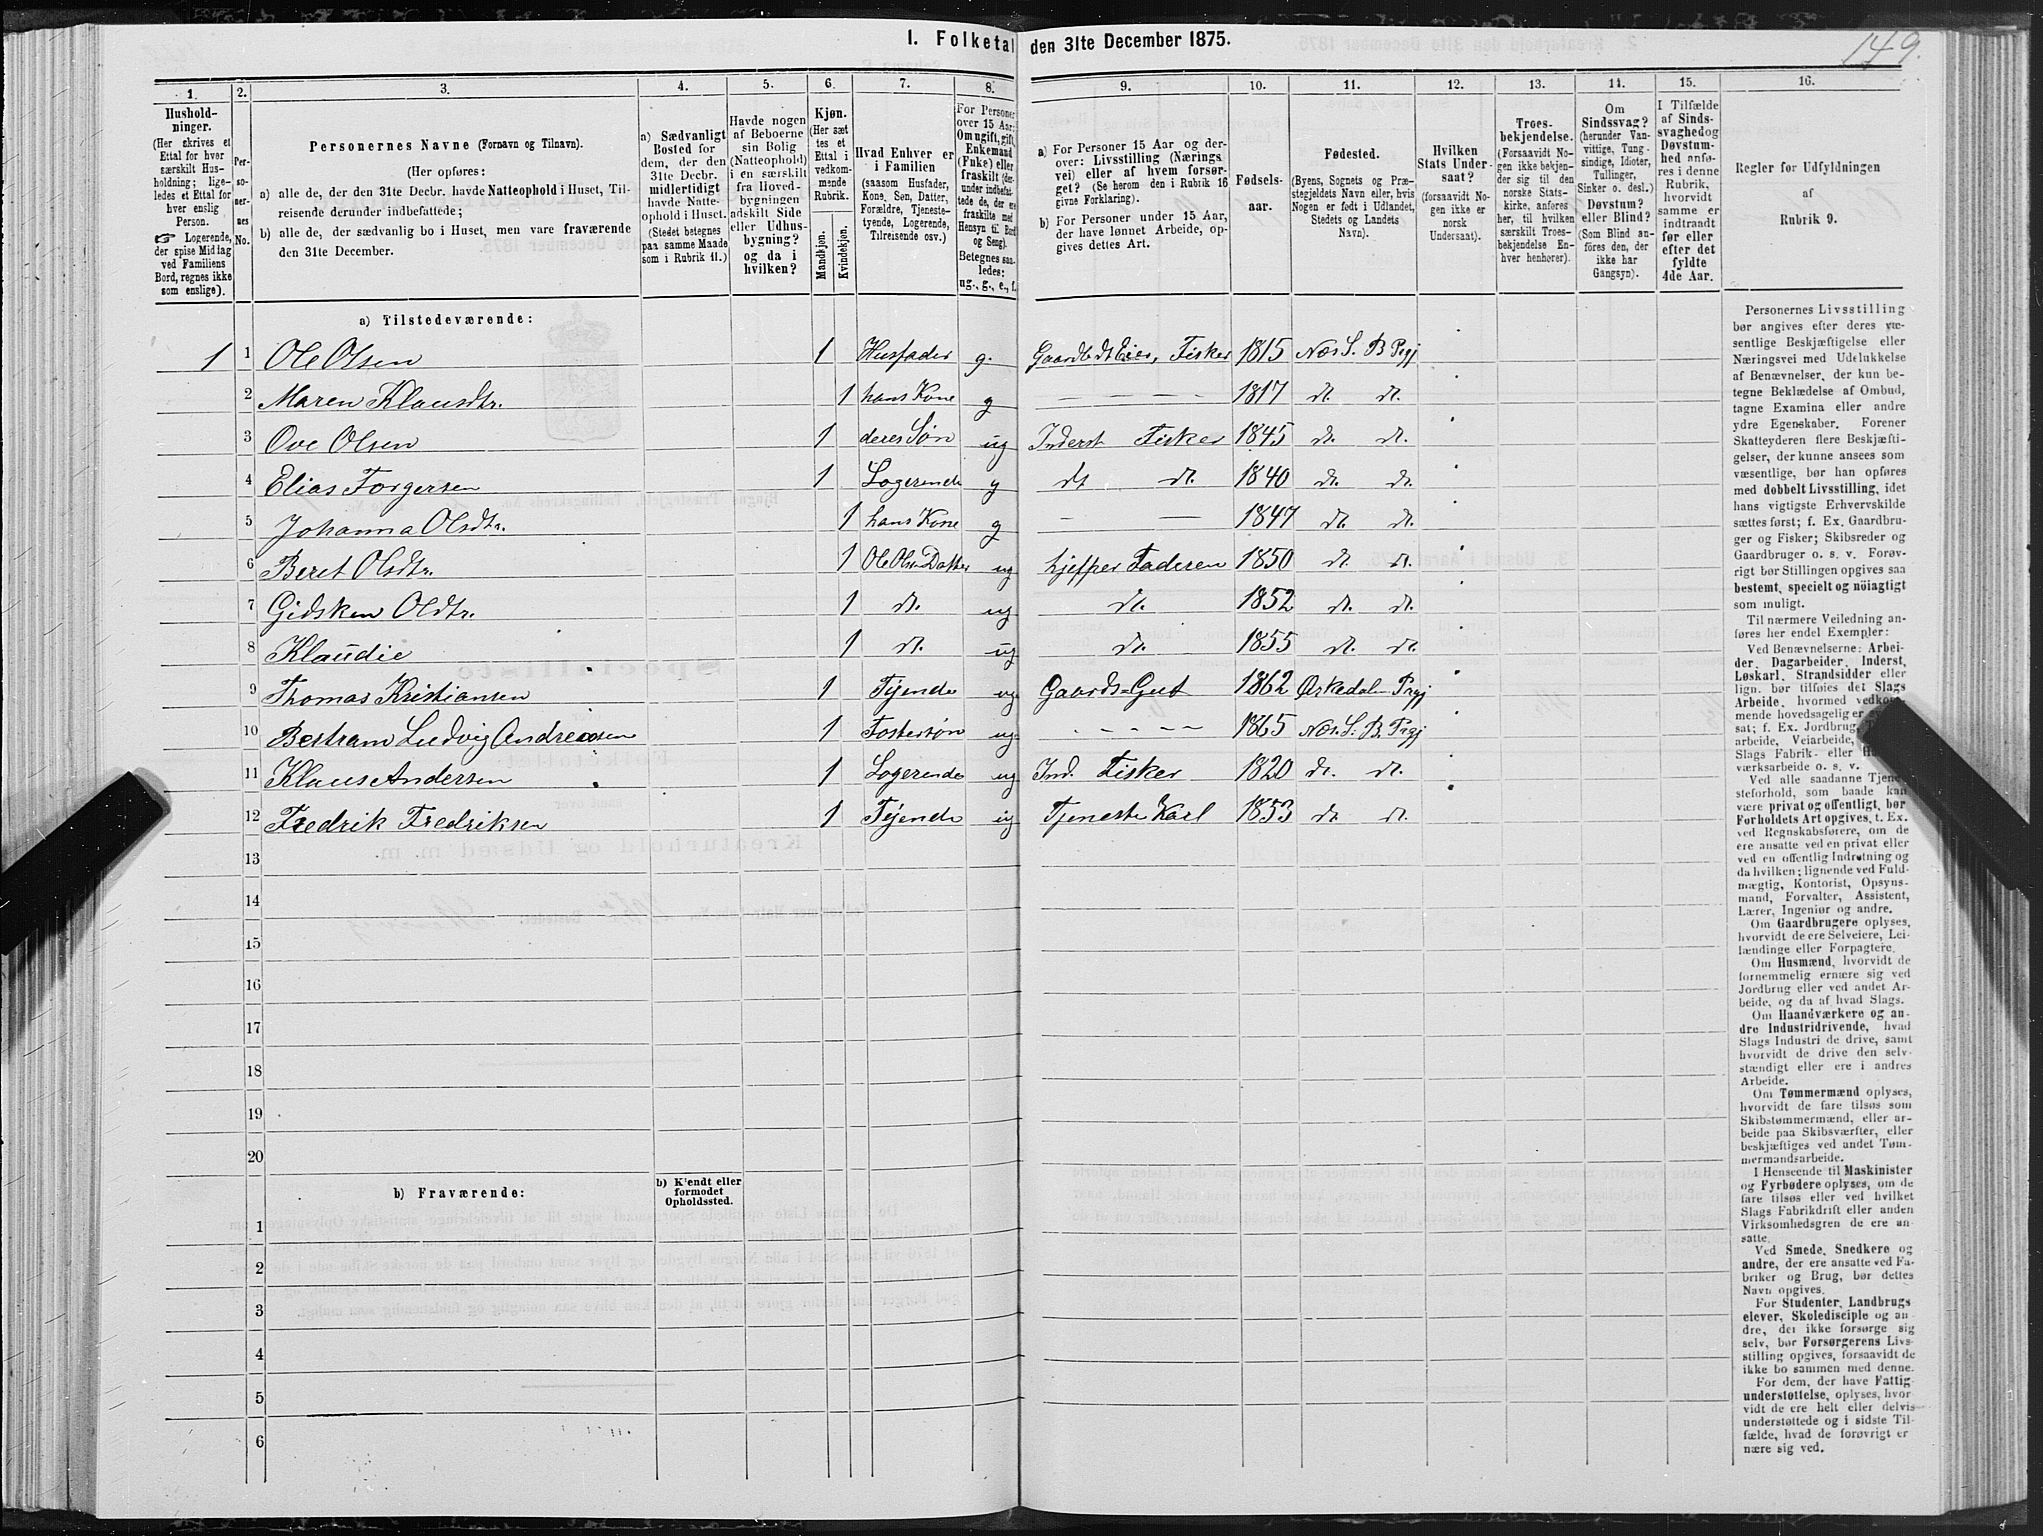 149.
I. Folketal den 31te December 1875.
1.
Hushold-
ninger.
(Her skrives et
Ettal for hver
særskilt Hus-
holdning; lige-
ledes et Ettal for
hver enslig
Person.
☞ Logerende,
der spise Midlag
ved Familiens
Bord, regnes ikke
som enslige).
2.
Per-
so-
ner-
nes
No.
3.
Personernes Navne (Fornavn og Tilnavn).
(Her opføres:
a) alle de, der den 31te Decbr. havde Natteophold i Huset, Til-
reisende derunder indbefattede;
b) alle de, der sædvanlig bo i Huset, men vare fraværende
den 31te December.
4.
a) Sædvanligt
Bosted for
dem, der den
31te Decbr.
midlertidigt
havde Natte-
ophold i Huset.
(Stedet betegnes
paa samme Maade
som i Rubrik 11.)
5.
Havde nogen
af Beboerne
sin Bolig
(Natteophold)
i en særskilt
fra Hoved-
bygningen
adskilt Side
eller Udhus-
bygning?
og da i
hvilken?
6.
Kjøn.
(Her sæt
tes et
Ettal i
vedkom-
mende
Rubrik.
Mandkjøn.
Kvindekjøn.
7.
Hvad Enhver er
i Familien
(saasom Husfader,
Kone, Søn, Datter,
Forældre, Tjeneste-
tyende, Logerende,
Tilreisende osv.)
8.
For Personer
over 15 Aar:
Om ugift, gift,
Enkemand
(Fuke) eller
fraskilt (der-
under indbefat-
tede de, der ere
fraskilte med
Hensyn til Bord
og Seng).
Betegnes saa-
ledes:
ug., g., e., f.
9.
a) For Personer 15 Aar og der-
over: Livsstilling (Nærings
vei) eller af hvem forsør-
get? (Se herom den i Rubrik 16
givne Forklaring).
b) For Personer under 15 Aar,
der have lønnet Arbeide, op-
gives dettes Art.
10.
Fødsels-
aar.
11.
Fødested.
(Byens, Sognets og Præ-
stegjeldets Navn eller, hvis
Nogen er født i Udlandet,
Stedets og Landets
Navn).
12.
Hvilken
Stats Under-
saat?
(forsaavidt No-
gen ikke er
norsk
Undersaat).
13.
Troes-
bekjendelse.
(Forsaavidt No-
gen ikke bekjen-
der sig til den
norske Stats-
kirke, anføres
her, til hvilken
særskilt Troes-
bekjendelse En-
hver henhører).
14.
Om
Sindssvag?
(herunder Van-
vittige, Tung-
sindige, Idioter,
Tullinger,
Sinker o. desl.)
Døvstum?
eller Blind?
(Som Blind an-
føres den, der
ikke har
Gangsyn).
15.
I Tilfælde
af Sinds-
svaghed og
Døvstum-
hed anfø-
res i denne
Rubrik,
hvorvidt
samme er
indtraadt
før eller
efter det
fyldte
4de Aar.
16.
Regler for Udfyldningen
af
Rubrik 9.
a) Tilstedeværende:
1 1 Ole Olsen 1 Husfader g. Gaardb dt Eier, Fisker 1815 Næs S. B Prgj
2 Maren Klausdtr. 1 hans Kone g - - - - 1817 dt. dt.
3 Ove Olsen 1 deres Søn ug Inderst Fisker 1845 dt. dt.
4 Elias Torgersen 1 Logerende g dt dt. 1840 dt. dt.
5 Johanna Olsdtr. 1 hans Kone g - - 1847 dt. dt.
6 Beret Olsdtr. 1 Ole Ols. Datter ug hjelper Faderen 1850 dt. dt.
7 Gidsken Oldtr. 1 dt. ug dt. 1852 dt. dt.
8 Klaudie 1 dt. ug dt. 1855 dt. dt.
9 Thomas Kristiansen 1 Tjende ug Gaards-Gut 1862 Ørkedalen Prgj
10 Bertram Ludvig Andreasen 1 Fostersøn ug - - - - - 1865 Næs. S. B. Prgj
11 Klaus Andersen 1 Logerende ug Ind. Fisker 1820 dt. dt.
12 Fredrik Fredriksen 1 Tjende ug Tjeneste Karl 1853 dt. dt.
13
14
15
16
17
18
19
20
b) Fraværende:
b) Kjendt eller
formodet
Opholdssted.
1
2
3
4
5
6
Personernes Livsstilling
bør angives efter deres væ-
sentlige Beskjæftigelse eller
Næringsvei med Udelukkelse
af Benævnelser, der kun be-
tegne Beklædelse af Ombud,
tagne Examina eller andre
ydre Egenskaber. Forener
Skatteyderen flere Beskjæfti-
gelser, der kunne ansees som
væsentlige, bør han opføres
med dobbelt Livsstilling, idet
hans vigtigste Erhvervskilde
sættes først; f. Ex. Gaardbru-
ger og Fisker; Skibsreder og
Gaardbruger o. s. v. Forøv-
rigt bør Stillingen opgives saa
bestemt, specielt og nøiagtigt
som muligt.
Til nærmere Veiledning an-
føres her endel Exempler:
Ved Benævnelserne: Arbei-
der, Dagarbeider, Inderst,
Løskarl, Strandsidder eller
lign. bør tilføies det Slags
Arbeide, hvormed vedkom-
mende hovedsagelig er
sat; f. Ex. Jordbrug,
arbeide, Veiarbeide,
Slags Fabrik- eller
værksarbeide o. s. v.
Ved alle saadanne Tjene-
steforhold, som baade kan
være privat og offentligt, bør
Forholdets Art opgives, t. Ex.
ved Regnskabsførere, om de
ere ansatte ved en privat eller
ved en offentlig Indretning og
da hvilken; lignende ved Fuld-
mægtig, Kontorist, Opsyns-
mand, Forvalter, Assistent,
Lærer, Ingeniør og andre.
Om Gaardbrugere oplyses,
hvorvidt de ere Selveiere, Lei-
lændinge eller Forpagtere.
Om Husmænd, hvorvidt de
fornemmelig ernære sig ved
Jordbrug eller ved andet Ar-
beide, og da af hvad Slags.
Om Haandværkere og an-
dre Industridrivende, hvad
Slags Industri de drive, samt
hvorvidt de drive den selv-
stændigt eller ere i andres
Arbeide.
Om Tømmermænd oplyses,
hvorvidt de fare tilsøs som
Skibstømmermænd, eller ar-
beide paa Skibsværfter, eller
beskjæftiges ved andet Tøm-
mermandsarbeide.
I Henseende til Maskinister
og Fyrbødere oplyses, om de
fare tilsøs eller ved hvilket
Slags Fabrikdrift eller anden
Virksomhedsgren de ere an-
satte.
Ved Smede, Snedkere og
andre, der ere ansatte ved Fa-
briker og Brug, bør dettes
Navn opgives.
For Studenter, Landbrugs
elever, Skoledisciple og an-
dre, der ikke forsørge sig
selv, bør Forsørgerens Livs-
stilling opgives, forsaavidt de
ikke bo sammen med denne.
For dem, der have Fattig-
understøttelse, oplyses, hvor-
vidt de ere helt eller delvis
understøttede og i sidste Til-
fælde, hvad de forøvrigt er
nære sig ved.